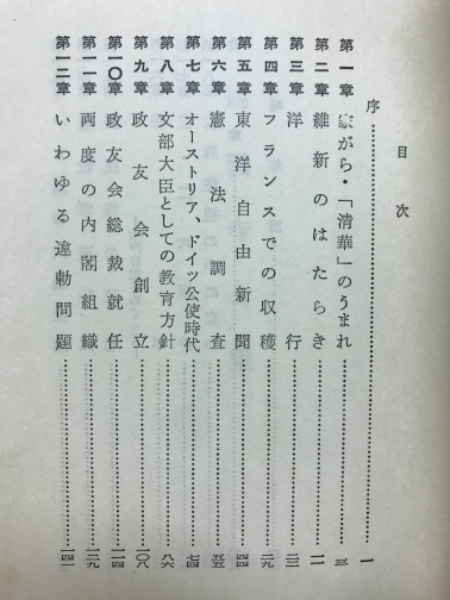 目次
序 一
第一章 家がら・「清華」のうまれ 三
第二章 維新のはたらき 一一
第三章 洋行 二三
第四章 フランスでの収穫 二九
第五章 東洋自由新聞 四四
第六章 憲法調査 五五
第七章 オーストリア、ドイツ公使時代 七四
第八章 文部大臣としての教育方針 八六
第九章 政友会創立 一〇八
第一〇章 政友会総裁就任 一一四
第一一章 両度の内閣組織 一二九
第一二章 いわゆる違勅問題 一四一